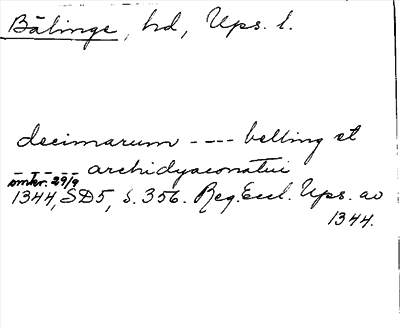 Bälinge, hd, Ups. l.
decimarum ---- belling et
----- archidyaconatui
omkr. 29/9
1344, SD5, s. 356. Reg. Eccl. Ups. av
1344.